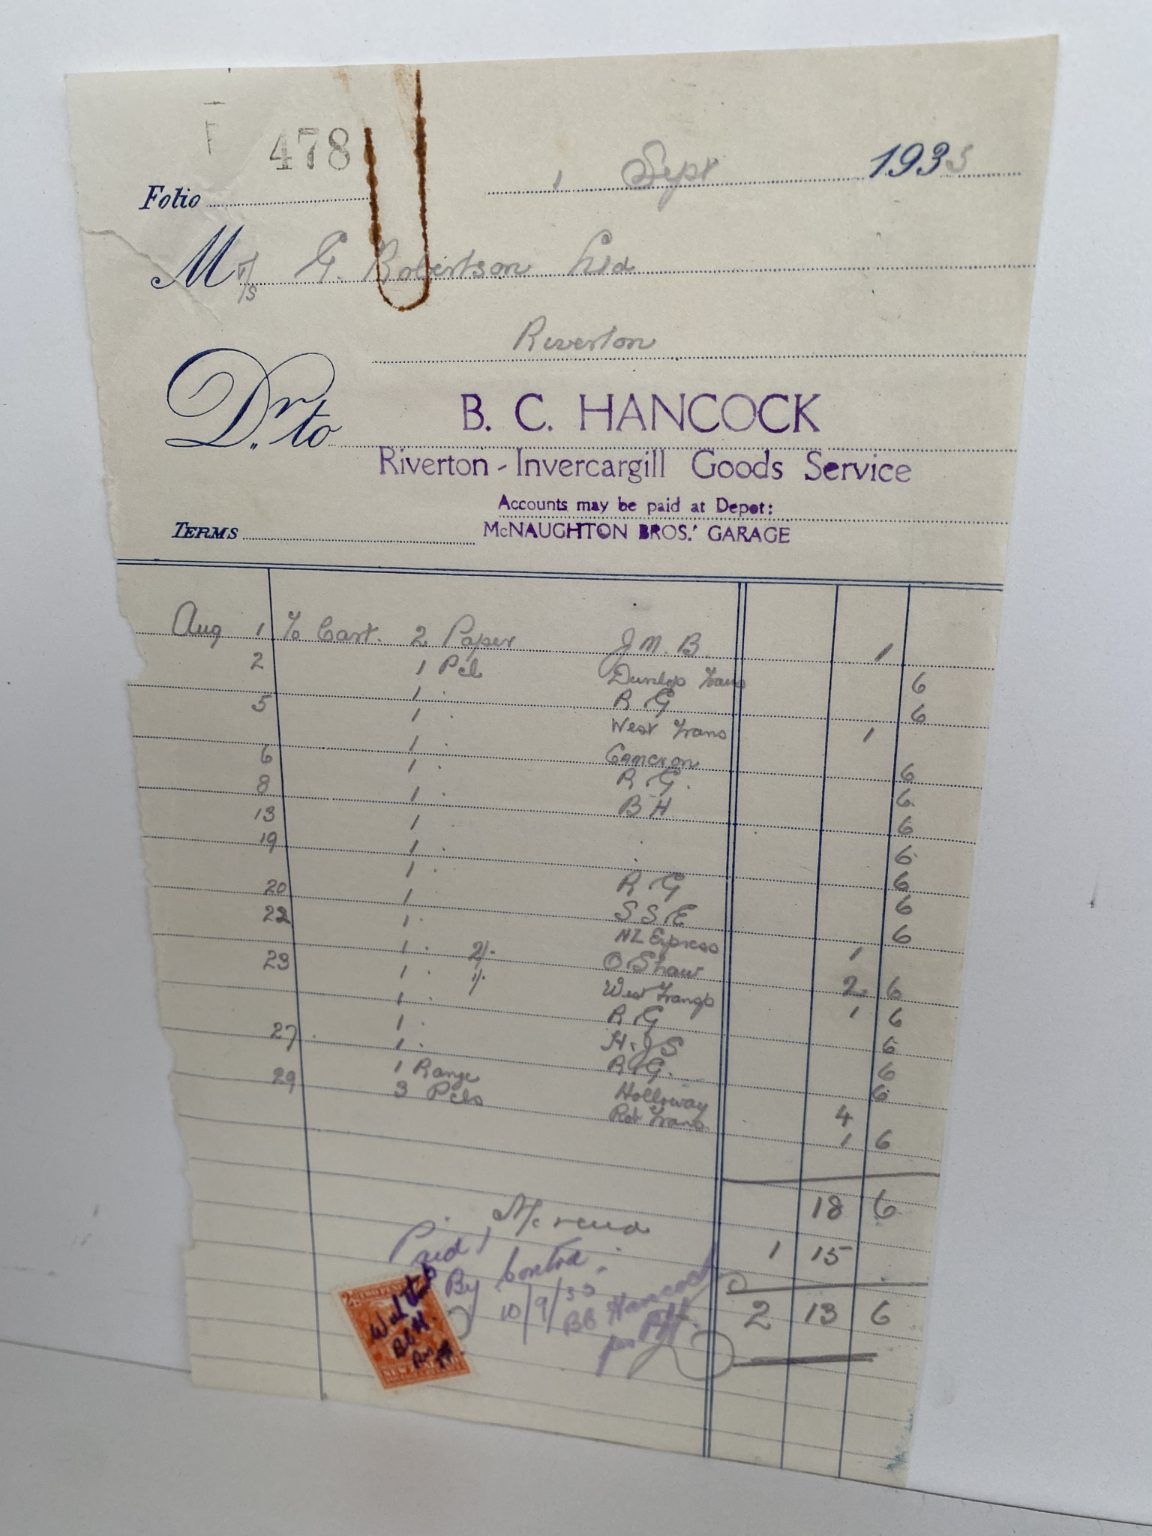 478
1 Sept 1933
Folio
M r/s G. Robertson Ltd
Riverton
Dr. to B. C. HANCOCK
Riverton - Invercargill Goods Service
Accounts may be paid at Depot:
TERMS McNAUGHTON BROS.' GARAGE
Aug 1 To Cart. 2 Paper J M. B 1
2 1 Pcl Dunlop Trans 6
1 . R G 6
5 1 . West Trans 1
1 . Cameron 6
6 1 . R. G. 6
8 1 . B H 6
13 1 . 6
19 1 . 6
1 . R. G 6
20 1 S S. E 6
22 1 . NZ Express 1
1 . 2/- O Shaw 2 6
23 1 . 1/- West Transp 1 6
1 . R. G 6
1 . H. J S 6
27 1 . R. G. 6
1 Range Holloway 4
29 3 Pcls Rot Trans 1 6
18 6
A/c rend 1 15
Paid
By Contra.
2 13 6
10/9/33
BC Hancock
per
TWO PENCE
BCH.
NEW ZEALAND